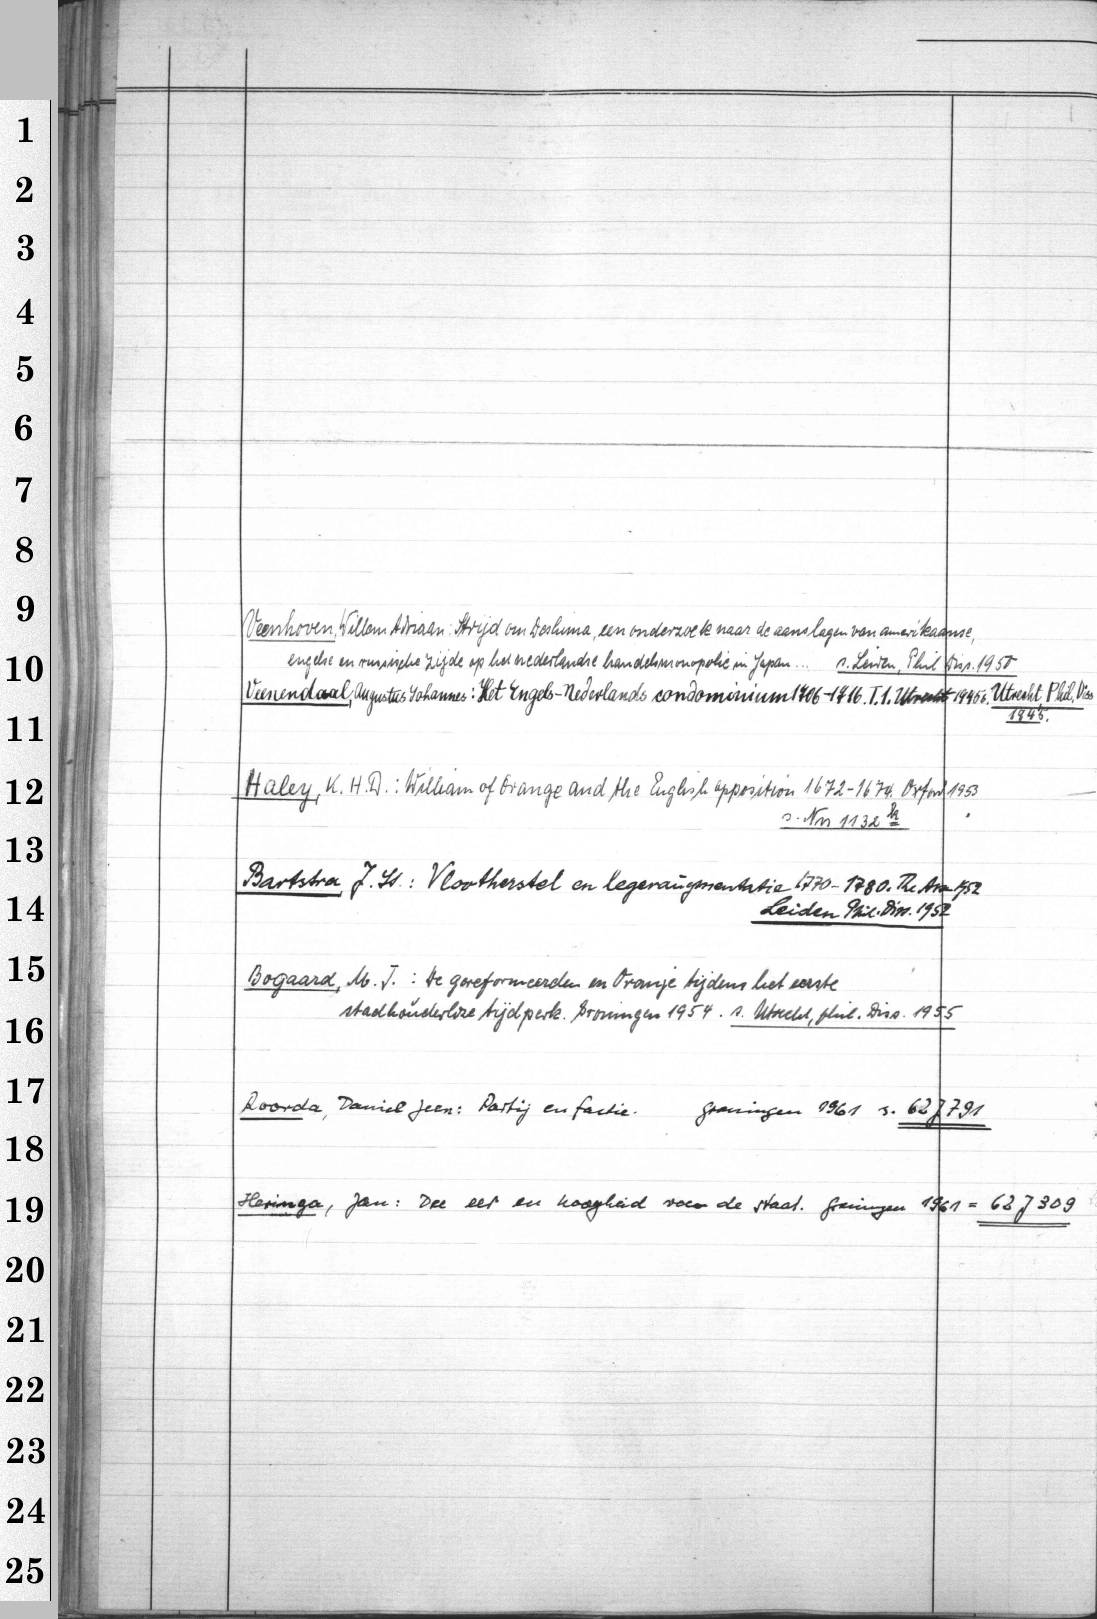 1
2
3
4
5
6
7
8
9
Veenhoven, Willem Adriaan: Strijd om Deshima, een onderzoek naar de aanslagen van amerikaanse,
10
engelse en russische zijde op het nederlandse handelsmonopolie in Japan... s. Leiden, Phil Diss. 1950
Veenendaal, Augustus Johannes: Het Engels-Nederlands condominium 1706-1716. T.1. Utrecht 1945. Utrecht, Phil. Diss
11
1945.
12
Haley, K. H. D.: William of Orange and the English opposition 1672-1674. Oxford 1953
s. Nn 1132
13
Bartstra, J. St.: Vlootherstel en legeraugmentatie 1770-1780. 1952
14
Leiden Phil. Diss. 1952
15
Bogaard, M. T.: De gereformeerden en Oranje tijdens het eerste
16
stadhouderloze tijdperk. Groningen 1954. s. Utrecht, phil. Diss. 1955
17
Roorda, Daniel Jeen: Partij en factie. Groningen 1961 s. 62 J 791
18
19
Heringa, Jan: Dee eer en hoogheid van de staat. Groningen 1961 = 62 J 309
20
21
22
23
24
25